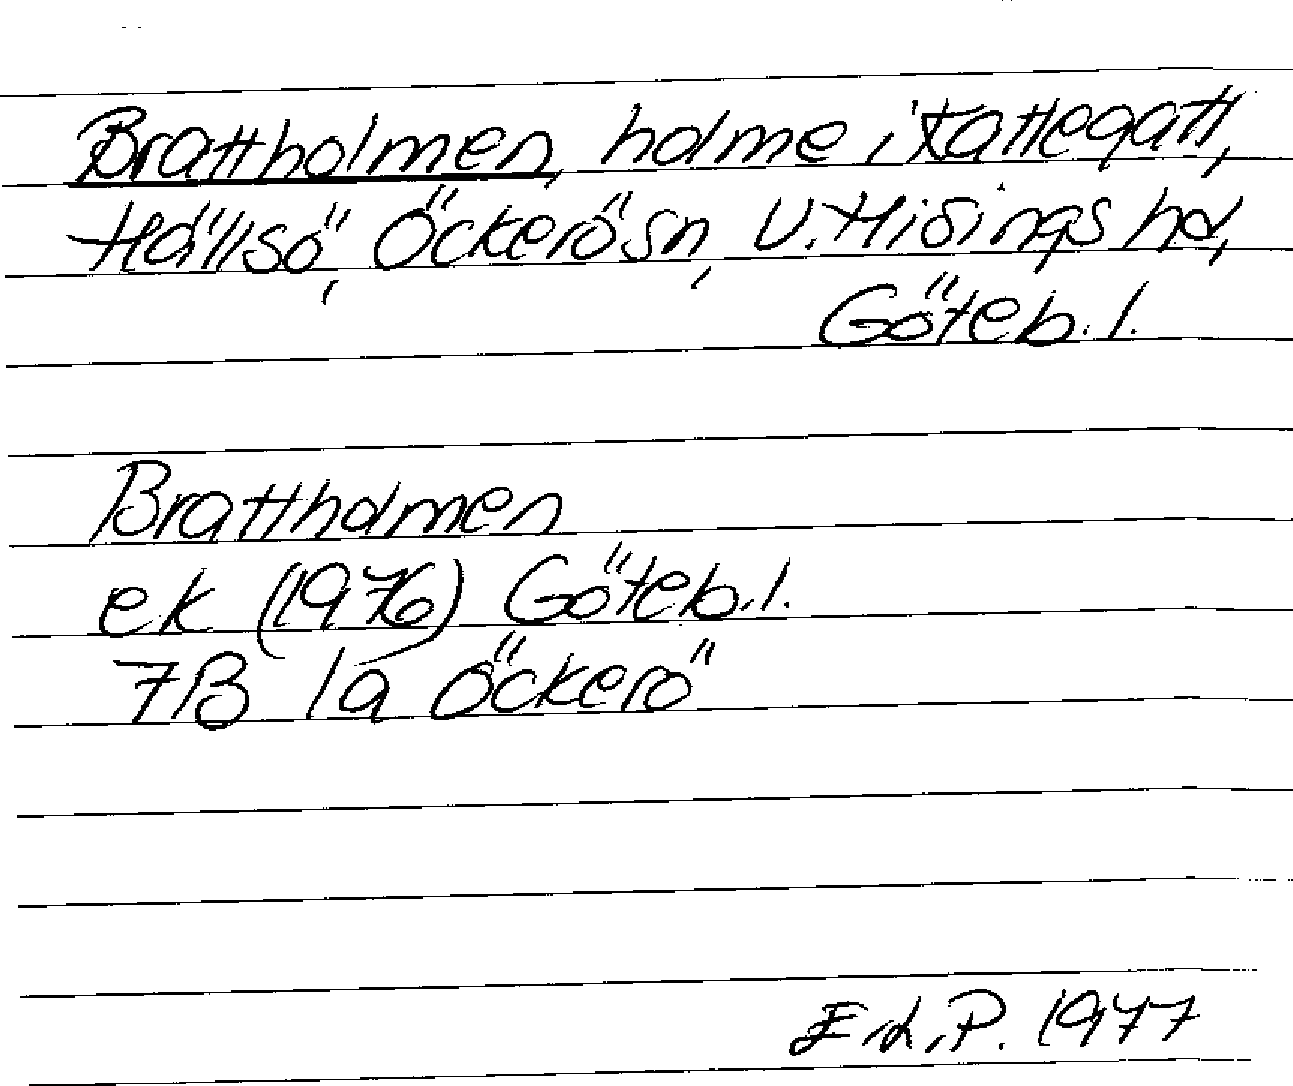 Brattholmen, holme i Kattegatt,
Hällsö, Öckerö sn, V. Hisings hd,
Göteb. l.
Brattholmen
ek (1976) Göteb. l.
7B 1a Öckerö
1977